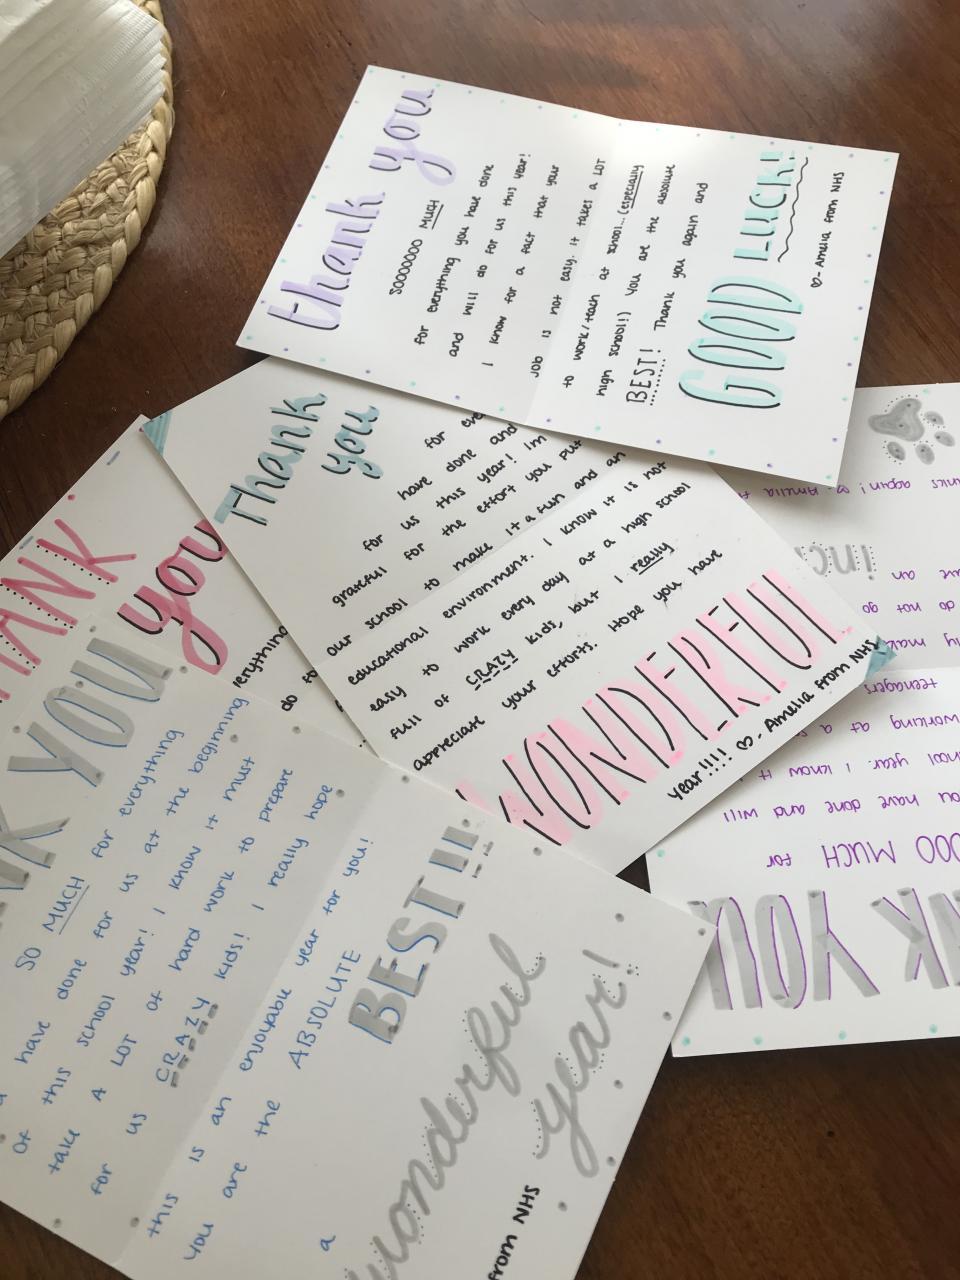 thank you
SOOOOOOO MUCH
for everything you have done
and will do for us this year!
I know for a fact that your
job is not easy. it takes a LOT
to work/teach at school... (especially
high school!!) You are the absolute
BEST! Thank you again and
GOOD LUCK!
♡- Amelia from NHS
Thank
you
for eve
have done and
for us this year! Im
grateful for the effort you put
our school to make it a fun and an
educational environment. I know it is not
easy to work every day at a high school
full of CRAZY kids, but I really
appreciate your efforts. Hope you have
WONDERFUL
year!!!! ♡- Amelia from NHS
ANK
you
everything
do to
YOU
SO MUCH for everything
have done for us at the beginning
of this school year! I know it must
take A LOT of hard work to prepare
for us CRAZY kids! I really hope
this is an enjoyable year for you!
You are the ABSOLUTE
BEST!!
a wonderful
year!
from NHS
NK YOU
OOO MUCH for
ou have done and will
hool year. I know it
working at a s
teenagers
ly mak
do not go
an inc
anks again! ♡ Amelia